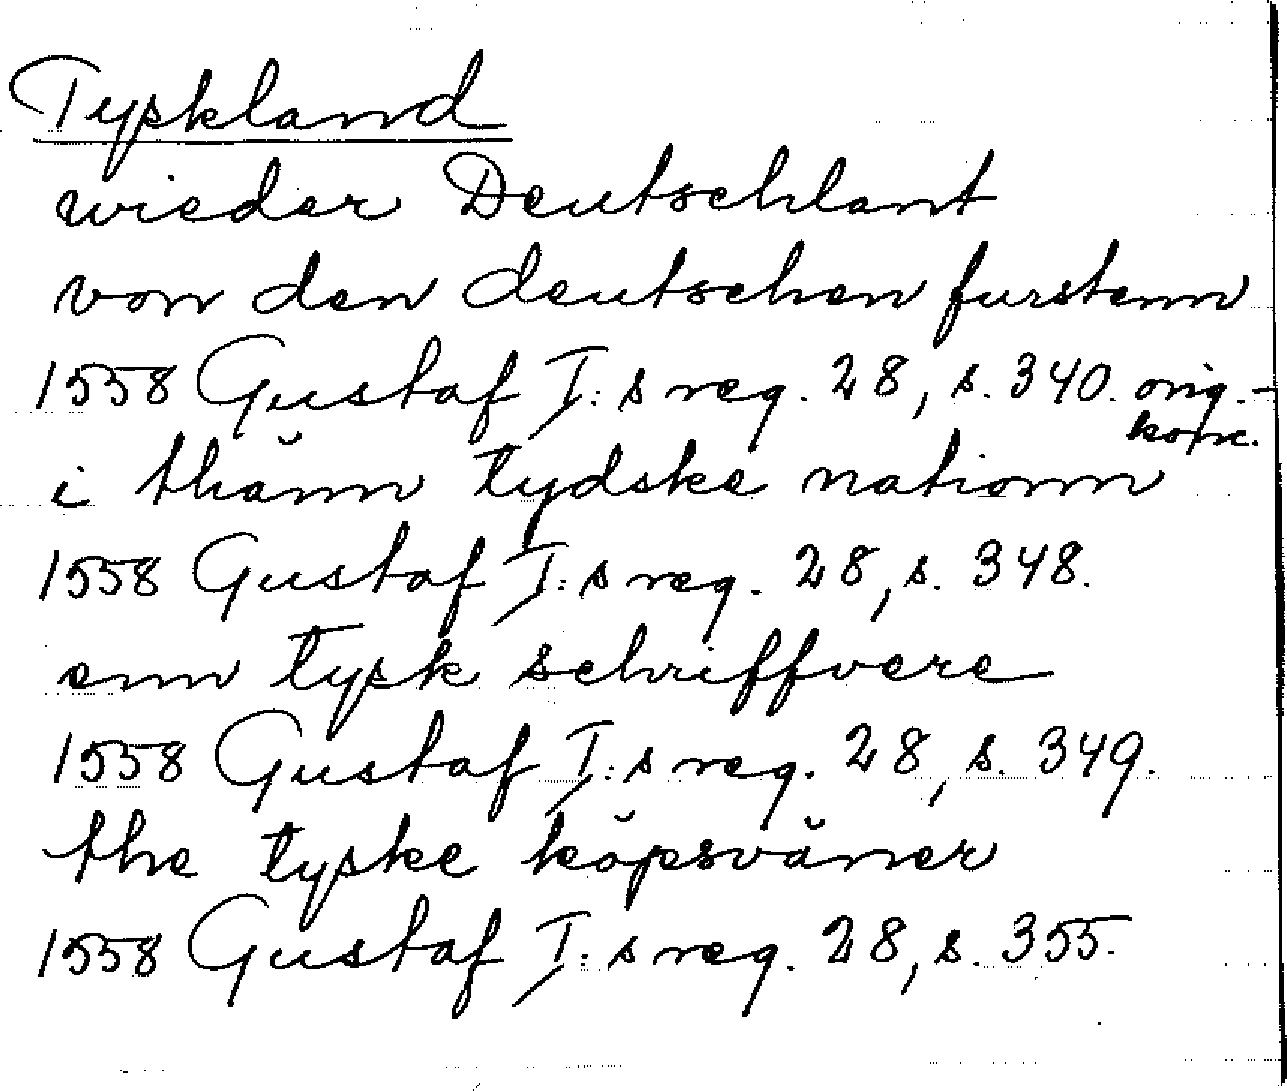 Tyskland
wieder Deutschlant
von den deutschen furstenn
1558 Gustaf I:s reg. 28, s. 340. orig.-
konc.
i thänn tydske nationn
1558 Gustaf I:s reg. 28, s. 348.
enn tysk schriffvere
1558 Gustaf I:s reg. 28, s. 349.
the tyske köpsväner
1558 Gustaf I:s reg. 28, s. 355.